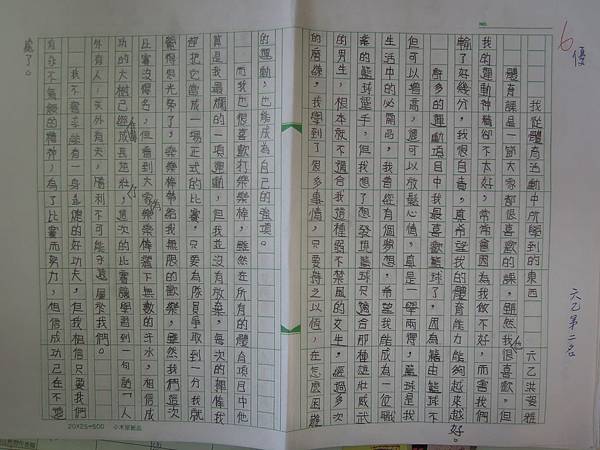 NO.
6
優
六乙第二名
我從體育活動中所學到的東西
六乙洪
體育課是一節大家都很喜歡的課,雖然我很喜歡,但
我的運動神經卻不太好,常常會因為我做不好,而害我們
輸了好幾分,我很自責,真希望我的體育能力能夠越來越好。
許多的運動項目中我最喜歡籃球了,因為藉由籃球不
但可以增高,還可以放鬆心情,真是一舉兩得,籃球是我
生活中的必需品,我曾經有個夢想,希望我能成為一位職
業的籃球選手,但我想了想發現籃球只適合那種雄壯威武
的男生,根本就不適合我這種弱不禁風的女生,經過多次
的磨練,我學到了很多事情,只要持之以恆,在怎麼困難
的運動,也能成為自己的強項。
而我也很喜歡打樂樂棒,雖然在所有的體育項目中他
算是我最爛的一項運動,但我並沒有放棄,每次的練習我
都把它當成一場正式的比賽,只要為隊員爭取到一分我就
覺得很光榮了,樂樂棒帶給我無限的歡樂,雖然我們這次
比賽沒得名,但看到大家為樂樂棒留下無數的汗水,相信成
功的大樹已經成長茁壯,這次的比賽讓我學習到一句話「人
外有人,天外有天,勝利不可能永遠屬於我們。
我不奢求能有一身高超的好功夫,但我相信只要我們
有永不氣餒的精神,為了比賽而努力,相信成功已在不遠
處了。
20X25=500